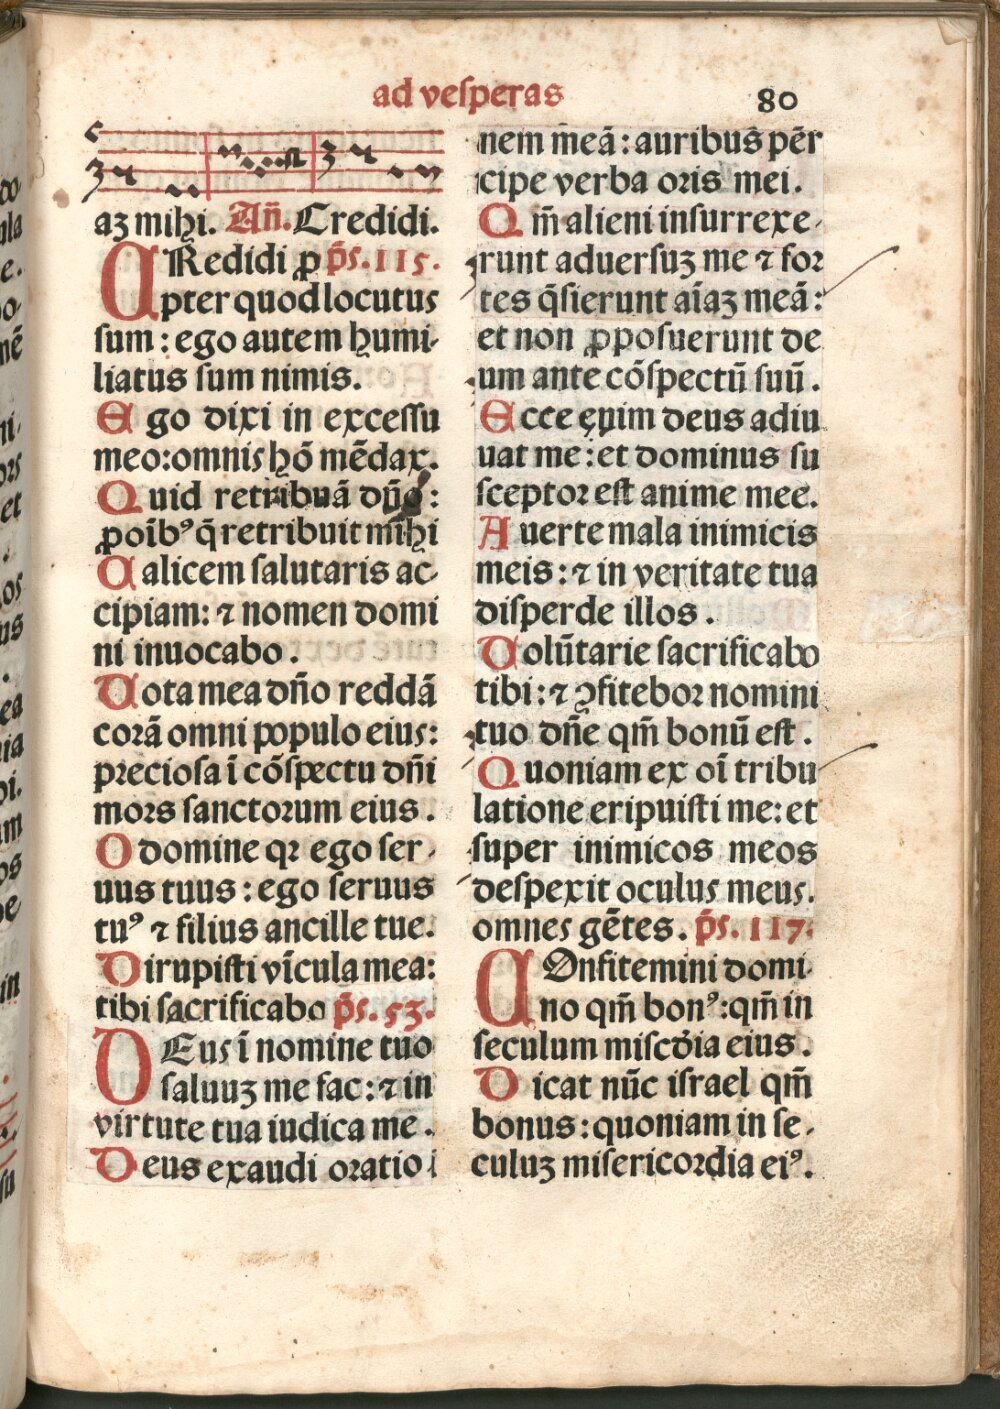 ad veſperas
80
aꝫ mihi. Añ. Credidi.
CRedidi ꝓ p̄s. 115.
pter quod locutus
ſum : ego autem humi-
liatus ſum nimis.
Ego dixi in exceſſu
meo: omnis hõ mẽdax.
Quid retribuã dño :
ꝓ oĩbꝰ q̃ retribuit mihi
Calicem ſalutaris ac-
cipiam: ⁊ nomen domi
ni inuocabo .
Vota mea dño reddã
corã omni populo eius:
precioſa ĩ cõſpectu dñi
mors ſanctorum eius .
O domine qꝛ ego ſer-
uus tuus : ego ſeruus
tuꝰ ⁊ filius ancille tue.
Dirupiſti vĩcula mea:
tibi ſacrificabo p̄s. 53.
DEus ĩ nomine tuo
ſaluuꝫ me fac: ⁊ in
virtute tua iudica me .
Deus exaudi oratio
nem meã : auribus pẽr
cipe verba oris mei .
Qm̃ alieni inſurrexe-
runt aduerſuꝫ me ⁊ foꝛ
tes q̃ſierunt aĩaꝫ meã :
et non ꝓpoſuerunt de
um ante cõſpectũ ſuũ .
Ecce enim deus adiu
uat me : et dominus ſu
ſceptoꝛ eſt anime mee.
Auerte mala inimicis
meis : ⁊ in veritate tua
diſperde illos .
Volũtarie ſacrificabo
tibi : ⁊ ꝯfiteboꝛ nomini
tuo dñe qm̃ bonũ eſt .
Quoniam ex oĩ tribu
latione eripuiſti me: et
ſuper inimicos meos
deſpexit oculus meus.
omnes gẽtes . p̄s. 117.
COnfitemini domi-
no qm̃ bonꝰ: qm̃ in
ſeculum miſcd̃ia eius .
Dicat nũc iſrael qm̃
bonus : quoniam in ſe-
culuꝫ miſericoꝛdia eiꝰ.